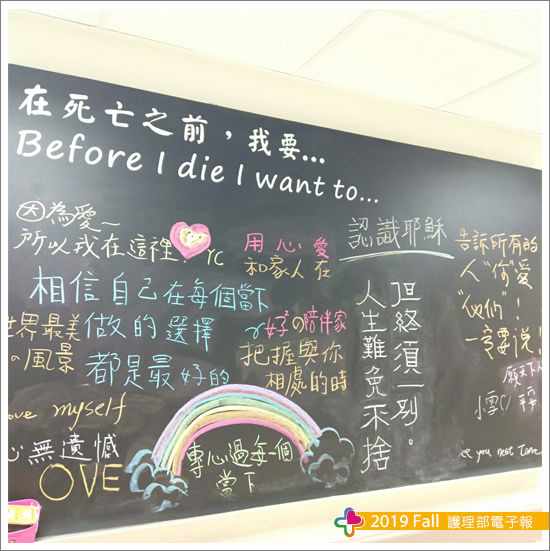 在死亡之前，我要...
Before I die I want to...
因為愛～
所以我在這裡.
YC
相信自己在每個當下
做的選擇
都是最好的
世界最美
の風景
love myself
心無遺憾
OVE
用心愛
和家人在
好好の陪伴家
把握與你
相處的時
專心過每一個
當下
認識耶穌
人生難免不捨
但終須一別。
告訴所有的
人"你"愛
"他們"！
一定要說！
願天下人
平安
小雪
see you next time..
2019 Fall 護理部電子報